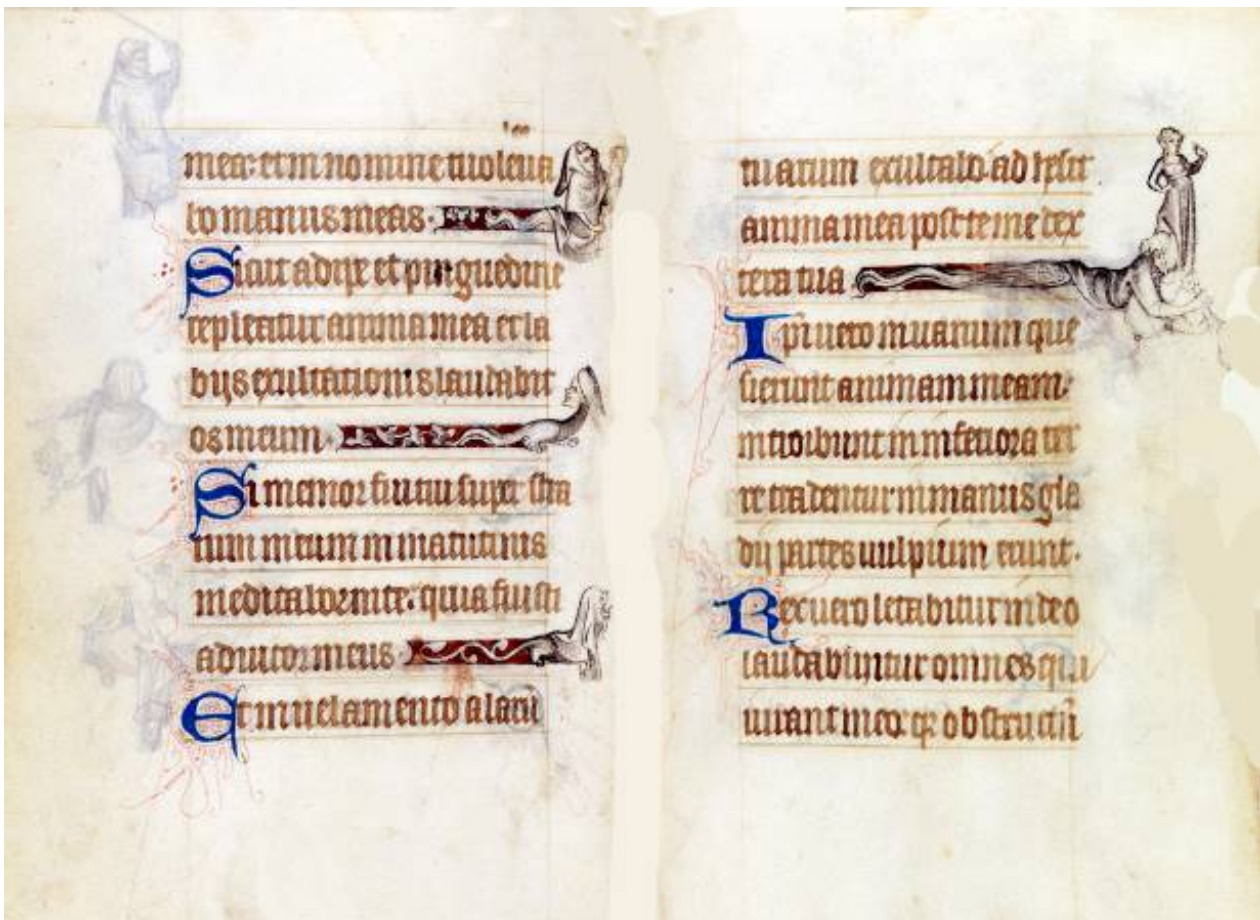 mea: et in nomine tuo leua
bo manus meas.
Sicut adipe et pinguedine
repleatur anima mea et la
bijs exultationis laudabit
os meum.
Si memor fui tui super stra
tum meum in matutinis
meditabor in te. quia fuisti
adiutor meus
Et in uelamento alarū
tuarum exultabo. adhesit
anima mea post te me dex
tera tua
Ipi uero in uanum que
sierunt animam meam.
introibunt in inferiora ter
re tradentur in manus gla
dij partes uulpium erunt.
Rex uero letabitur in deo
laudabuntur omnes qui
iurant in eo. qr obstructū